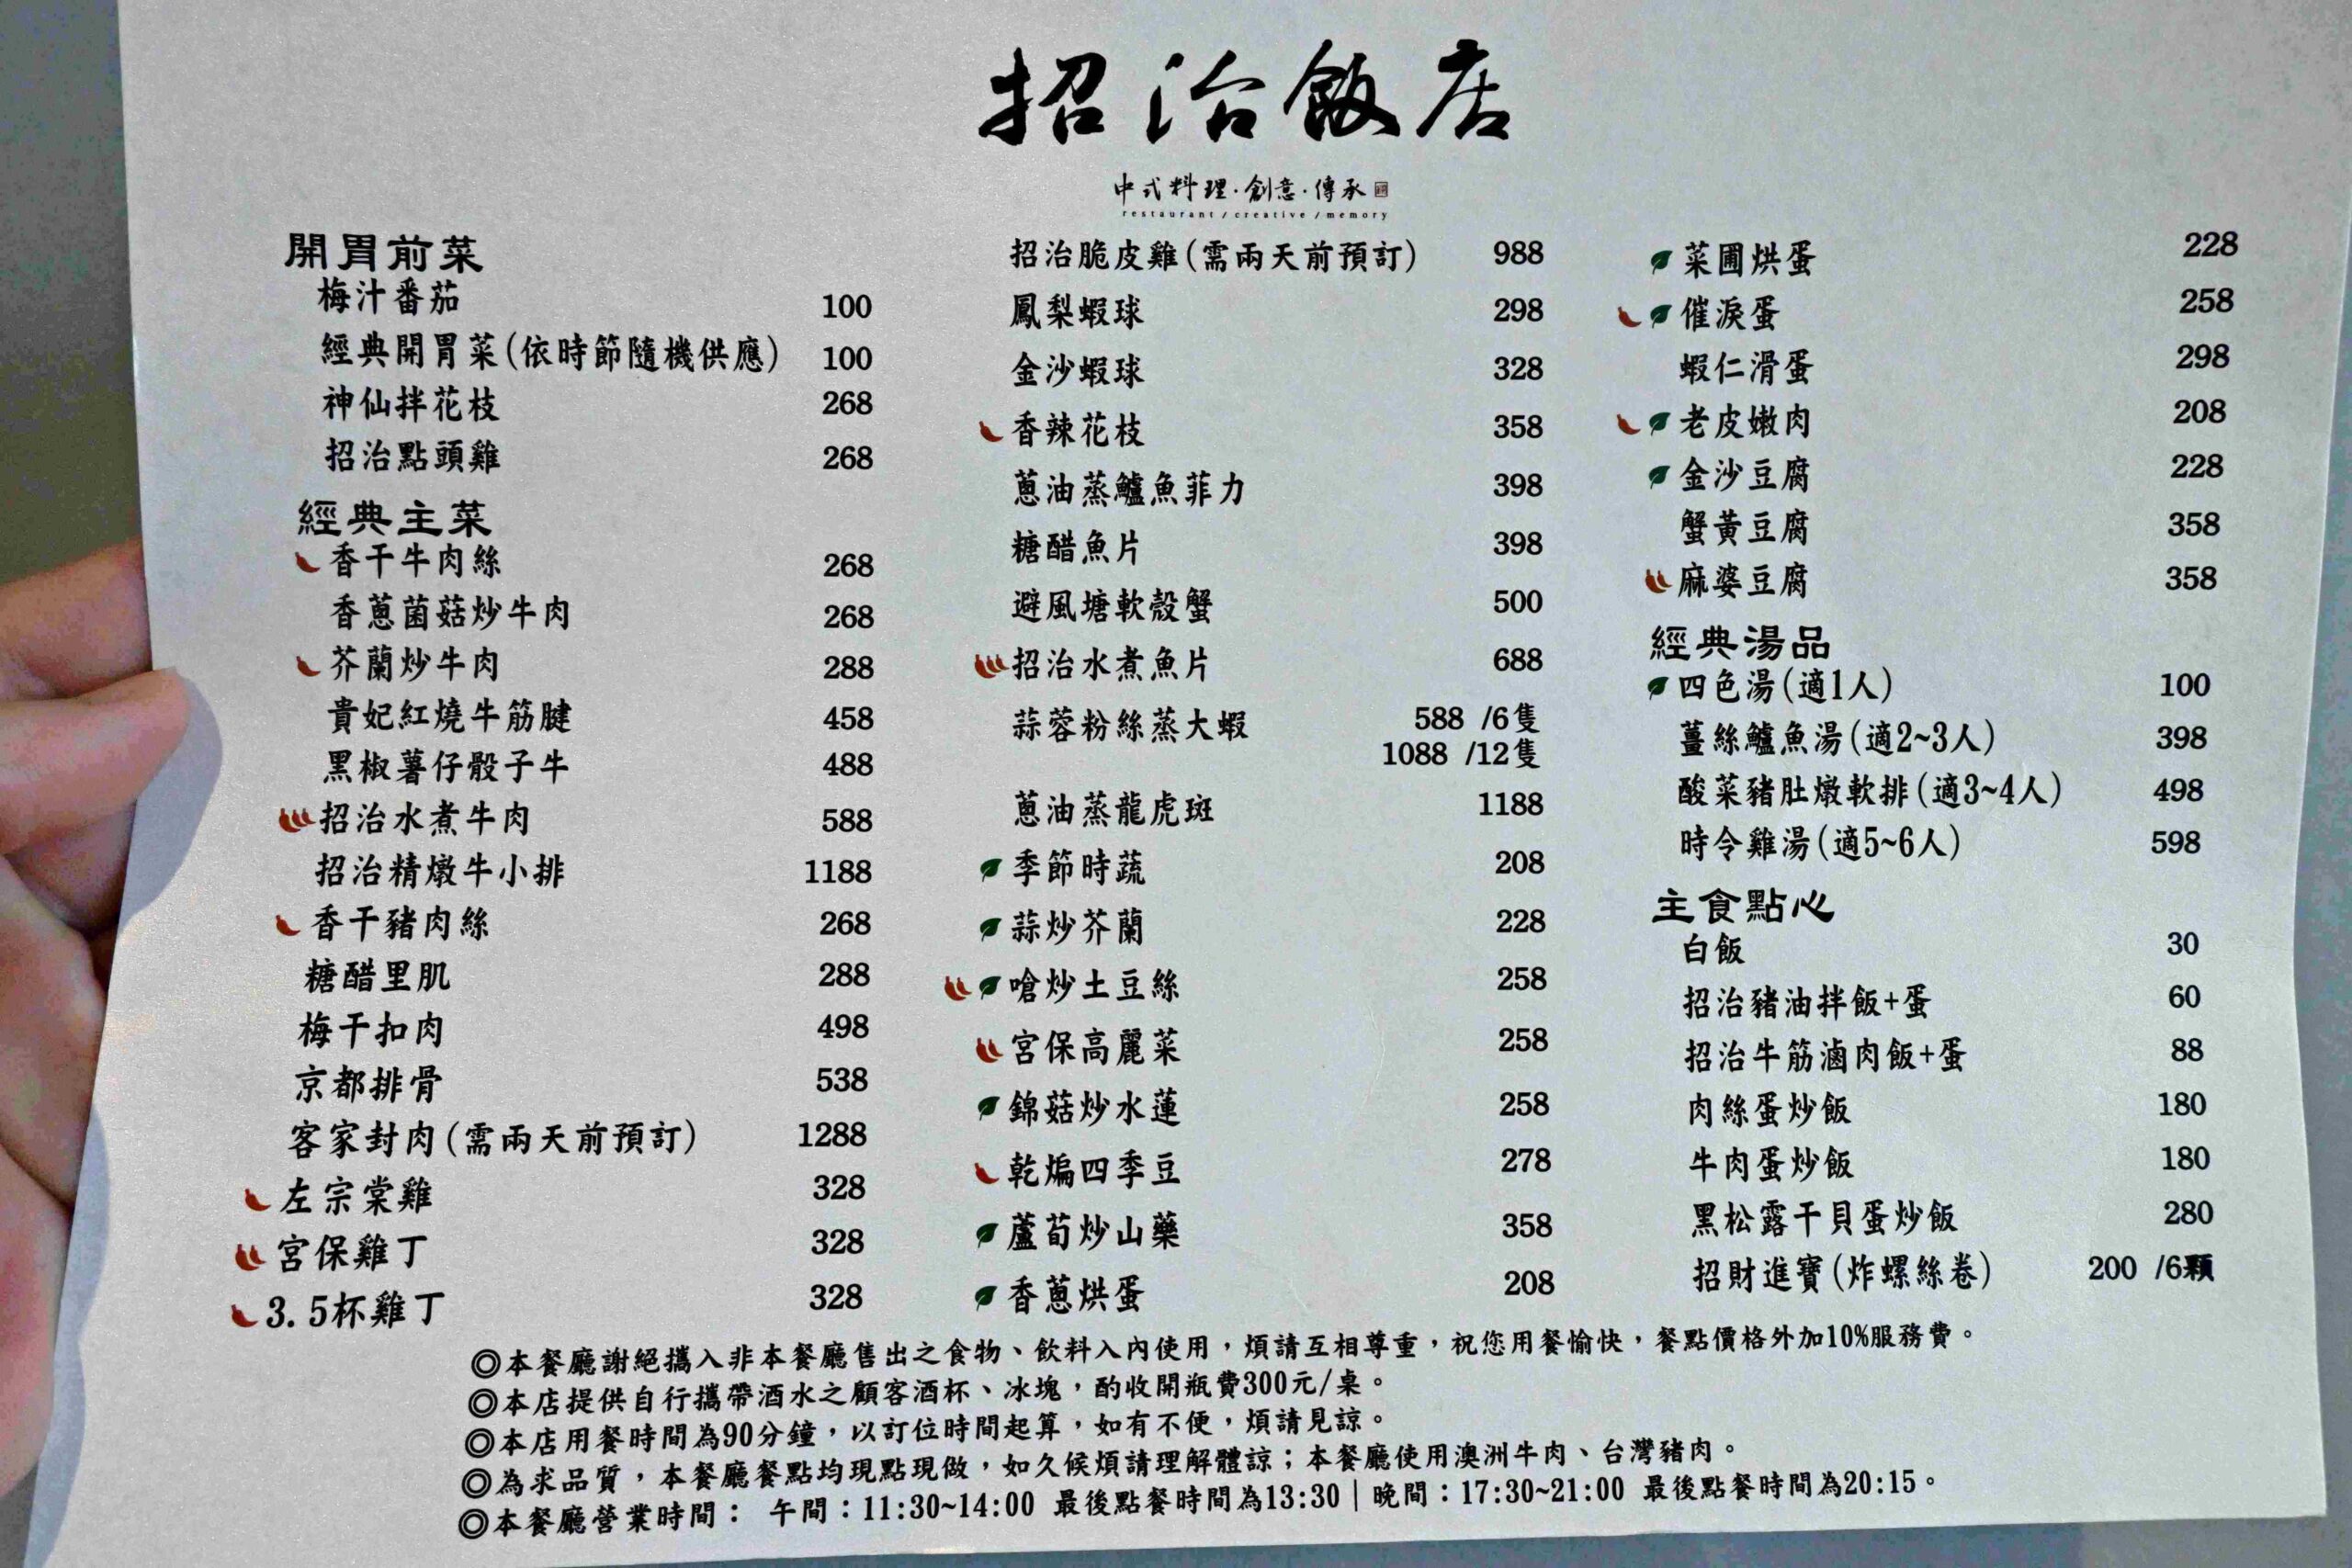 招治飯店
中式料理·創意·傳承
restaurant / creative / memory
開胃前菜
梅汁番茄 100
經典開胃菜(依時節隨機供應) 100
神仙拌花枝 268
招治點頭雞 268
經典主菜
香干牛肉絲 268
香蔥菌菇炒牛肉 268
芥蘭炒牛肉 288
貴妃紅燒牛筋腱 458
黑椒薯仔骰子牛 488
招治水煮牛肉 588
招治精燉牛小排 1188
香干豬肉絲 268
糖醋里肌 288
梅干扣肉 498
京都排骨 538
客家封肉(需兩天前預訂) 1288
左宗棠雞 328
宮保雞丁 328
3.5杯雞丁 328
招治脆皮雞(需兩天前預訂) 988
鳳梨蝦球 298
金沙蝦球 328
香辣花枝 358
蔥油蒸鱸魚菲力 398
糖醋魚片 398
避風塘軟殼蟹 500
招治水煮魚片 688
蒜蓉粉絲蒸大蝦 588 /6隻
1088 /12隻
蔥油蒸龍虎斑 1188
季節時蔬 208
蒜炒芥蘭 228
嗆炒土豆絲 258
宮保高麗菜 258
錦菇炒水蓮 258
乾煸四季豆 278
蘆荀炒山藥 358
香蔥烘蛋 208
菜圃烘蛋 228
催淚蛋 258
蝦仁滑蛋 298
老皮嫩肉 208
金沙豆腐 228
蟹黃豆腐 358
麻婆豆腐 358
經典湯品
四色湯(適1人) 100
薑絲鱸魚湯(適2~3人) 398
酸菜豬肚燉軟排(適3~4人) 498
時令雞湯(適5~6人) 598
主食點心
白飯 30
招治豬油拌飯+蛋 60
招治牛筋滷肉飯+蛋 88
肉絲蛋炒飯 180
牛肉蛋炒飯 180
黑松露干貝蛋炒飯 280
招財進寶(炸螺絲卷) 200 /6顆
◎本餐廳謝絕攜入非本餐廳售出之食物、飲料入內使用，煩請互相尊重，祝您用餐愉快，餐點價格外加10%服務費。
◎本店提供自行攜帶酒水之顧客酒杯、冰塊，酌收開瓶費300元/桌。
◎本店用餐時間為90分鐘，以訂位時間起算，如有不便，煩請見諒。
◎為求品質，本餐廳餐點均現點現做，如久候煩請理解體諒；本餐廳使用澳洲牛肉、台灣豬肉。
◎本餐廳營業時間： 午間：11:30~14:00 最後點餐時間為13:30｜晚間：17:30~21:00 最後點餐時間為20:15。